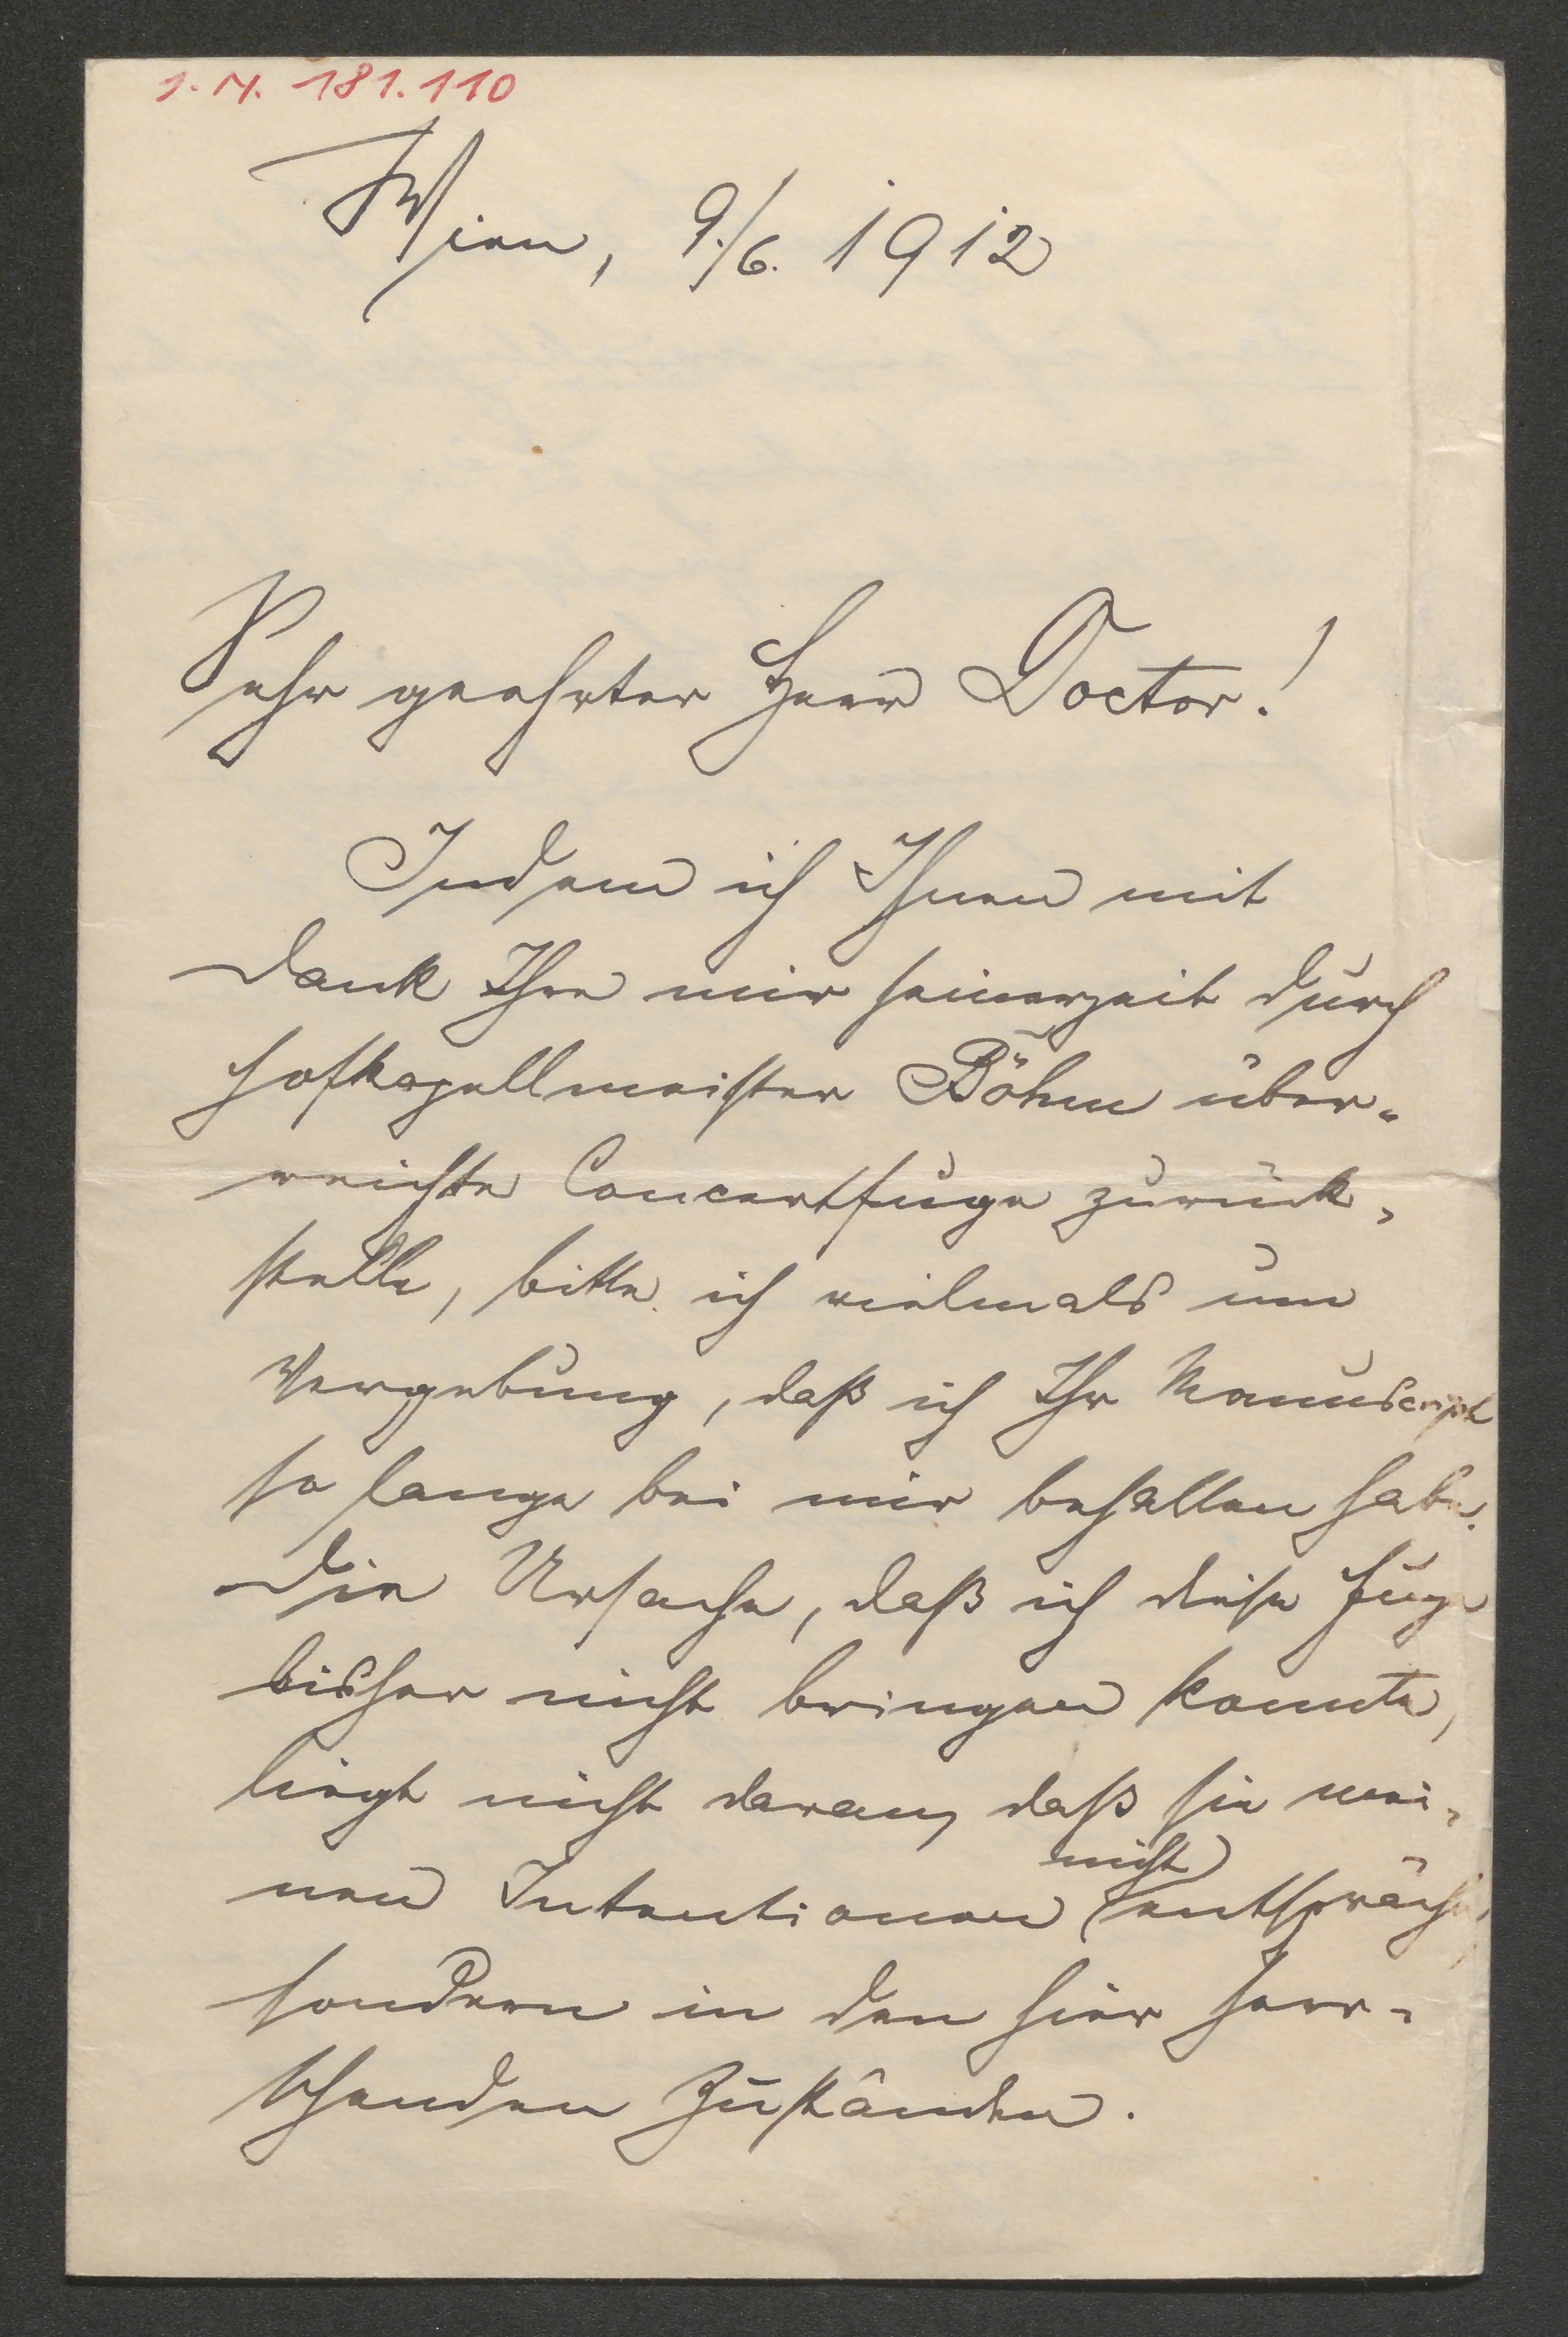 I. N. 181.110
Wien, 9./6. 1912
Sehr geehrter Herr Doctor!
Indem ich Ihnen mit
Dank Ihre mir seinerzeit durch
Hofkapellmeister Böhm über-
reichte Concertfuge zurück-
stelle, bitte ich vielmals um
Vergebung, daß ich Ihr Manuscript
so lange bei mir behalten habe.
Die Ursache, daß ich diese Fuge
bisher nicht bringen konnte,
liegt nicht daran, daß sie mei-
nicht
nen Intentionen entspräche,
sondern in den hier herr-
schenden Zuständen.